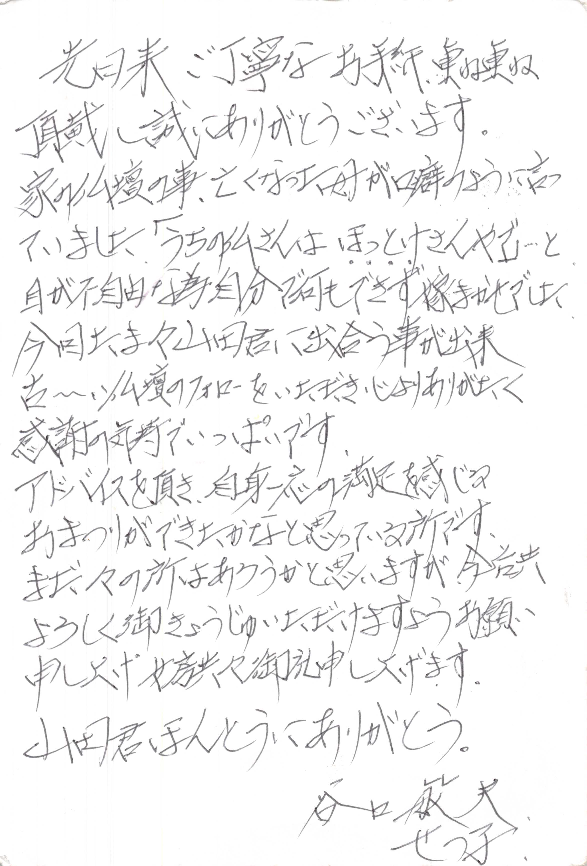 先日来 ご丁寧な お手紙、重ね重ね
頂戴し誠にありがとうございます。
家の仏壇の事、亡くなった母が口癖のように言っ
ていました、「うちの仏さんは ほっとけさんやで」…と
身が不自由な為自分で何もできず嫁まかせでした
今回たまたま山田君に出会う事が出来
古〜い仏壇のフォローをいただき、心よりありがたく
感謝の気持でいっぱいです
アドバイスを頂き、自身一応の満足を感じる
おまつりができたかなと思っている所です、
まだまだの所はあろうかと思いますが 今后共
よろしく御きょうじゅいただけますようお願い
申し上げ 女房共々御礼申し上げます。
山田君ほんとうにありがとう。
谷口 敏夫
せつ子